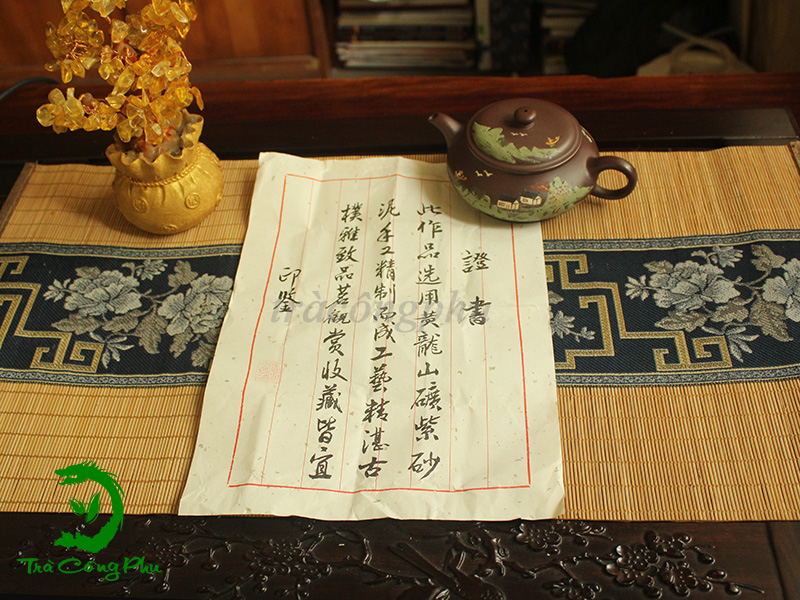 證書
此作品选用黄龍山礦紫砂
泥手工精制而成工藝精湛古
樸雅致品茗觀賞收藏皆宜
印鉴
trà công phu
Trà Công Phu